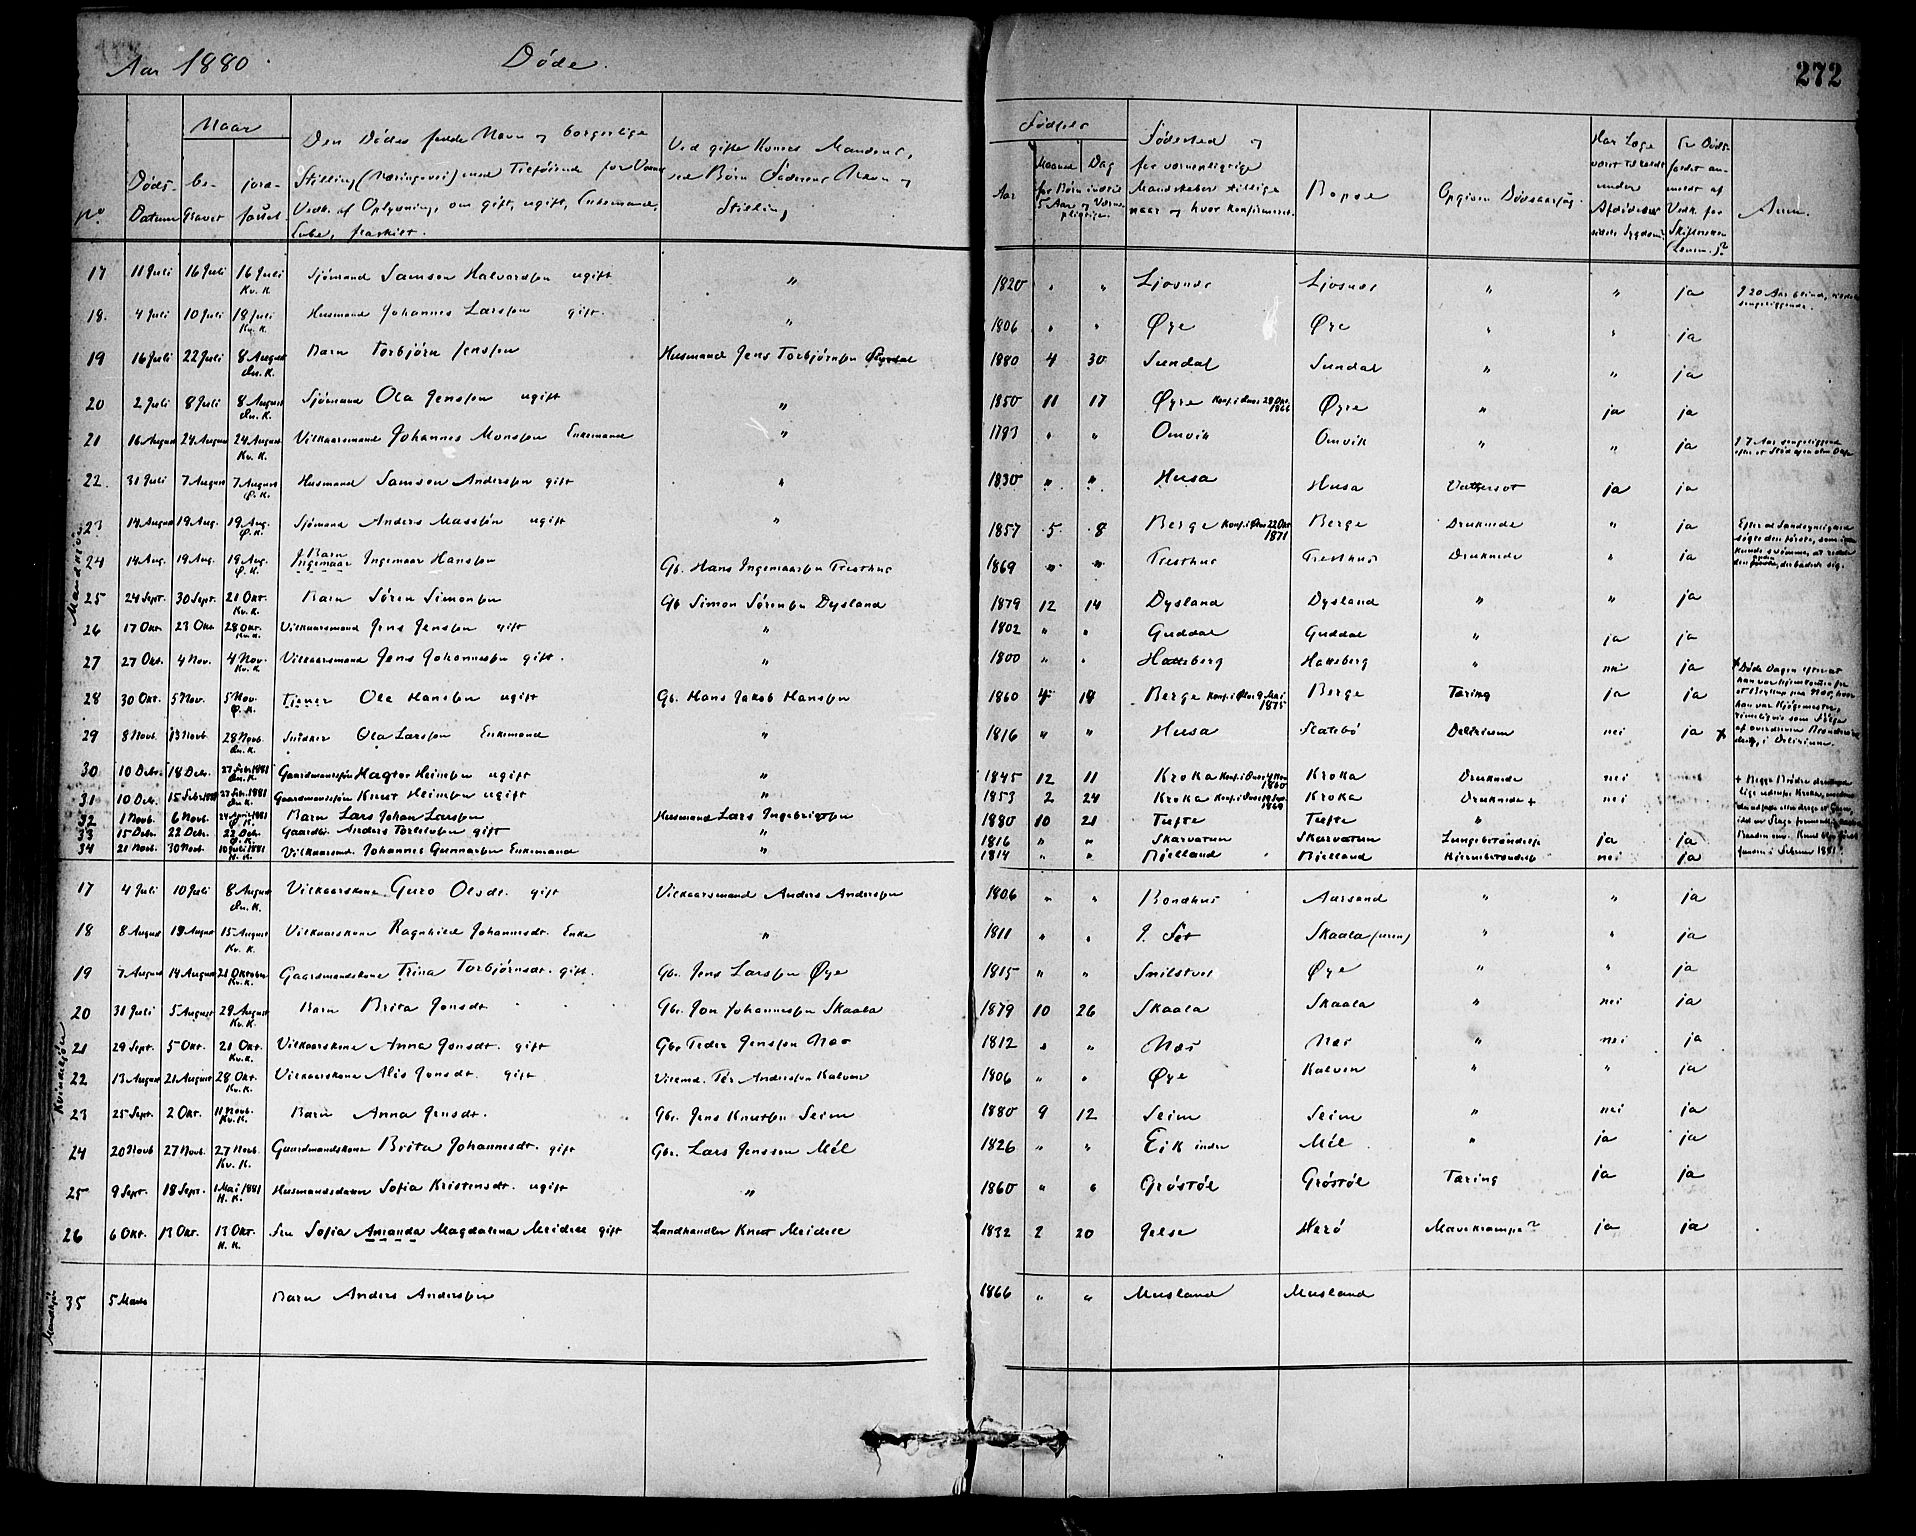 Aar 1880. Døde. 272
No. Døds-Datum Naar be-gravet jord-fæstet Den Dødes fulde Navn og borgerlige Stilling (Næringsvei) med Tilføiende for Voxnes Vedk. af Oplysning, om gift, ugift, Enkemand, Enke, fraskilt. Ved gifte Koners Mandens, ved Børn Faderens Navn og Stilling Fødsels Aar Maaned Dag for Børn indtil 5 Aar og Værnepligtige. Fødested og for værnepligtige Mandskaber tillige naar og hvor konfirmeret. Bopæl Opgiven Dødsaarsag. Har Læge været tilkaldt under Afdødes sidste Sygdom? Er Dødsfaldet anmeldt af Vedk. for Skifteretten (Lensm.)? Anm.
Mandkjøn
17 11 Juli 16 Juli 16 Juli Kv. K. Sjømand Samson Halvardsøn ugift " 1820 " " Ljosnes Ljosnes " " ja I 20 Aar blind, sengeliggende.
18. 4 Juli 10 Juli 18 Juli Kv. K. Husmand Johannes Larssøn gift. " 1806 " " Øye Øye " " ja
19 16 Juli 22 Juli 8 August Ɔn. K. Barn Torbjørn Jenssøn Husmand Jens Torbjørnsøn 1880 4 30 Sundal Sundal " " ja
20 2 Juli 8 Juli 8 August K. Sjømand Ola Jenssøn ugift " 1850 11 17 Øyre Konf. i 28 Okt. 1866 Øyre " ja ja
21 16 August 24 August 24 August Kv. K. Vilkaarsmand Johannes Monsøn Enkemand " 1793 " " Omvik Omvik " " ja I 7 Aar sengeliggende efter et Stød
22. 31 Juli 7 August 7 August Ø. K. Husmand Samson Andersøn gift " 1830 " " Husa Husa Vattersot ja ja
23 14 August 19 Aug. 19 Aug. Ø. K. Sjømand Anders Massøn ugift " 1857 5 8 Berge Konf. i 22 Okt 1871 Berge Druknede " ja Efter al Sandsynlighed søgte den første, som kunde svømme, at redde den anden, der badede sig.
24 14 Aug. 19 Aug. 19 Aug. Ø. K. Barn Ingemaar Ingemaar Hansøn Gb. Hans Ingemaarsøn Tresthus 1869 " " Tresthus Tresthus Druknede " ja
25 24 Sept. 30 Sept. 21 Okt. Kv. K. Barn Søren Simonsøn Gb Simon Sørensøn Dysland 1879 12 14 Dysland Dysland " " ja
26 17 Okt. 23 Okt 28 Okt. Kv. K. Vilkaarsmand Jens Jenssøn gift " 1802 " " Guddal Guddal " ja ja
27 27 Okt. 4 Nov. 4 Nov. Kv. K. Vilkaarsmand Jens Johannessøn gift. " 1800 " " Hatteberg Hatteberg " nei ja
28 30 Okt. 5 Nov. 5 Nov. Ø. K. Tjener Ole Hansøn ugift Gb. Hans Jakob Hansøn 1860 4 14 Berge Konf. i 1875 Berge Tæring ja ja
29 8 Novb. 13 Novb. 28 Novb. K. Snikker Ola Larssøn Enkemand " 1816 " " Husa Statebø Delirium nei ja X Døde Dagen efter at han var hjemkommen fra et Bryllup paa Næs, hvor han var Kjøgemester, rimeligvis som Følge af overdreven i Delirium.
30 10 Debr. 18 Debr. 27 Febr 1881 K. Gaardmandssøn Hagtor Heimsøn ugift " 1845 12 11 Kroka Konf. i 4 Nov 1860 Kroka Druknede nei + Begge Brødre druknede
31 10 Deb. 15 Febr 1881 27 Febr. 1881 K. Gaardmandssøn Knut Heimsøn ugift " 1853 2 24 Kroka Konf. i 1869 Kroka Druknede + nei
32 1 Novb. 6 Novb. 24 April 1881 Ø. K. Barn Lars Johan Larssøn Husmand Lars Ingebrigtsøn 1880 10 21 Tufte Tufte "
33 15 Debr. 22 Debr. 22 Deb. Ø. K. Gaardbr. Anders Torleivsøn gift " 1816 " " Skarvatun Skarvatun Lungebetændelse ja ja
34 21 Novb. 30 Novb. 10 Juli 1881 H. K. Vilkaarsmd. Johannes Gunnarsøn Enkemand " 1814 " " Bjelland Bjelland Hjernebetændelse nei ja
Kvindekjøn
17 4 Juli 10 Juli 8 August K. Vilkaarskone Guro Olsdt. gift Vilkaarsmand Anders Andersøn 1806 " " Bondhus Aarsand " " ja
18 8 August 13 August 15 August Kv. K. Vilkaarskone Ragnhild Johannesdt. Enke " 1811 " " I. Set Skaala (uren) " " ja
19 7 August 14 August 21 Oktober Kv. K. Gaardmandskone Trina Torbjørnsdt. gift. Gbr. Jens Larssøn Øye 1815 " " Snilstveit Øye " " ja
20 31 Juli 5 August 29 August Kv. K. Barn Brita Jonsdt. Gbr. Jon Johannessøn Skaala 1879 10 26 Skaala Skaala " nei ja
21 29 Sept. 5 Okt. 21 Okt. Kv. K. Vilkaarskone Anna Jonsdt. gift Gbr Peder Jenssøn Næs 1812 " " Næs Næs " nei ja
22 13 August 21 August 28 Okt. Kv. K. Vilkaarskone Alis Jonsdt. gift Vilkmd. Per Andersøn Kalven 1806 " " Øye Kalven " " ja
23 25 Sept. 2 Okt. 11 Novb. Kv. K. Barn Anna Jensdt. Gbr. Jens Knutsøn Seim 1880 9 12 Seim Seim " nei ja
24 20 Novb 27 Novb. 27 Novb. Kv. K. Gaardmandskone Brita Johannesdt. gift Gbr. Lars Jenssøn Mél 1826 " " Eik indre Mél " ja ja
25 9 Sept. 18 Sept. 1 Mai 1881 H. K. Husmandsdatter Sofia Kristensdt. ugift " 1860 " " Grøstøl Grøstøl Tæring ja ja
26 6 Okt. 13 Okt. 13 Okt. H. K. Fru Sofia Amanda Magdalena Meidell gift Landhandler Knut Meidell 1832 2 20 Gelse Herø Mavekrampe? ja ja
Mandkjøn
35 5 Marts Barn Anders Andersøn 1866 " " Musland Musland